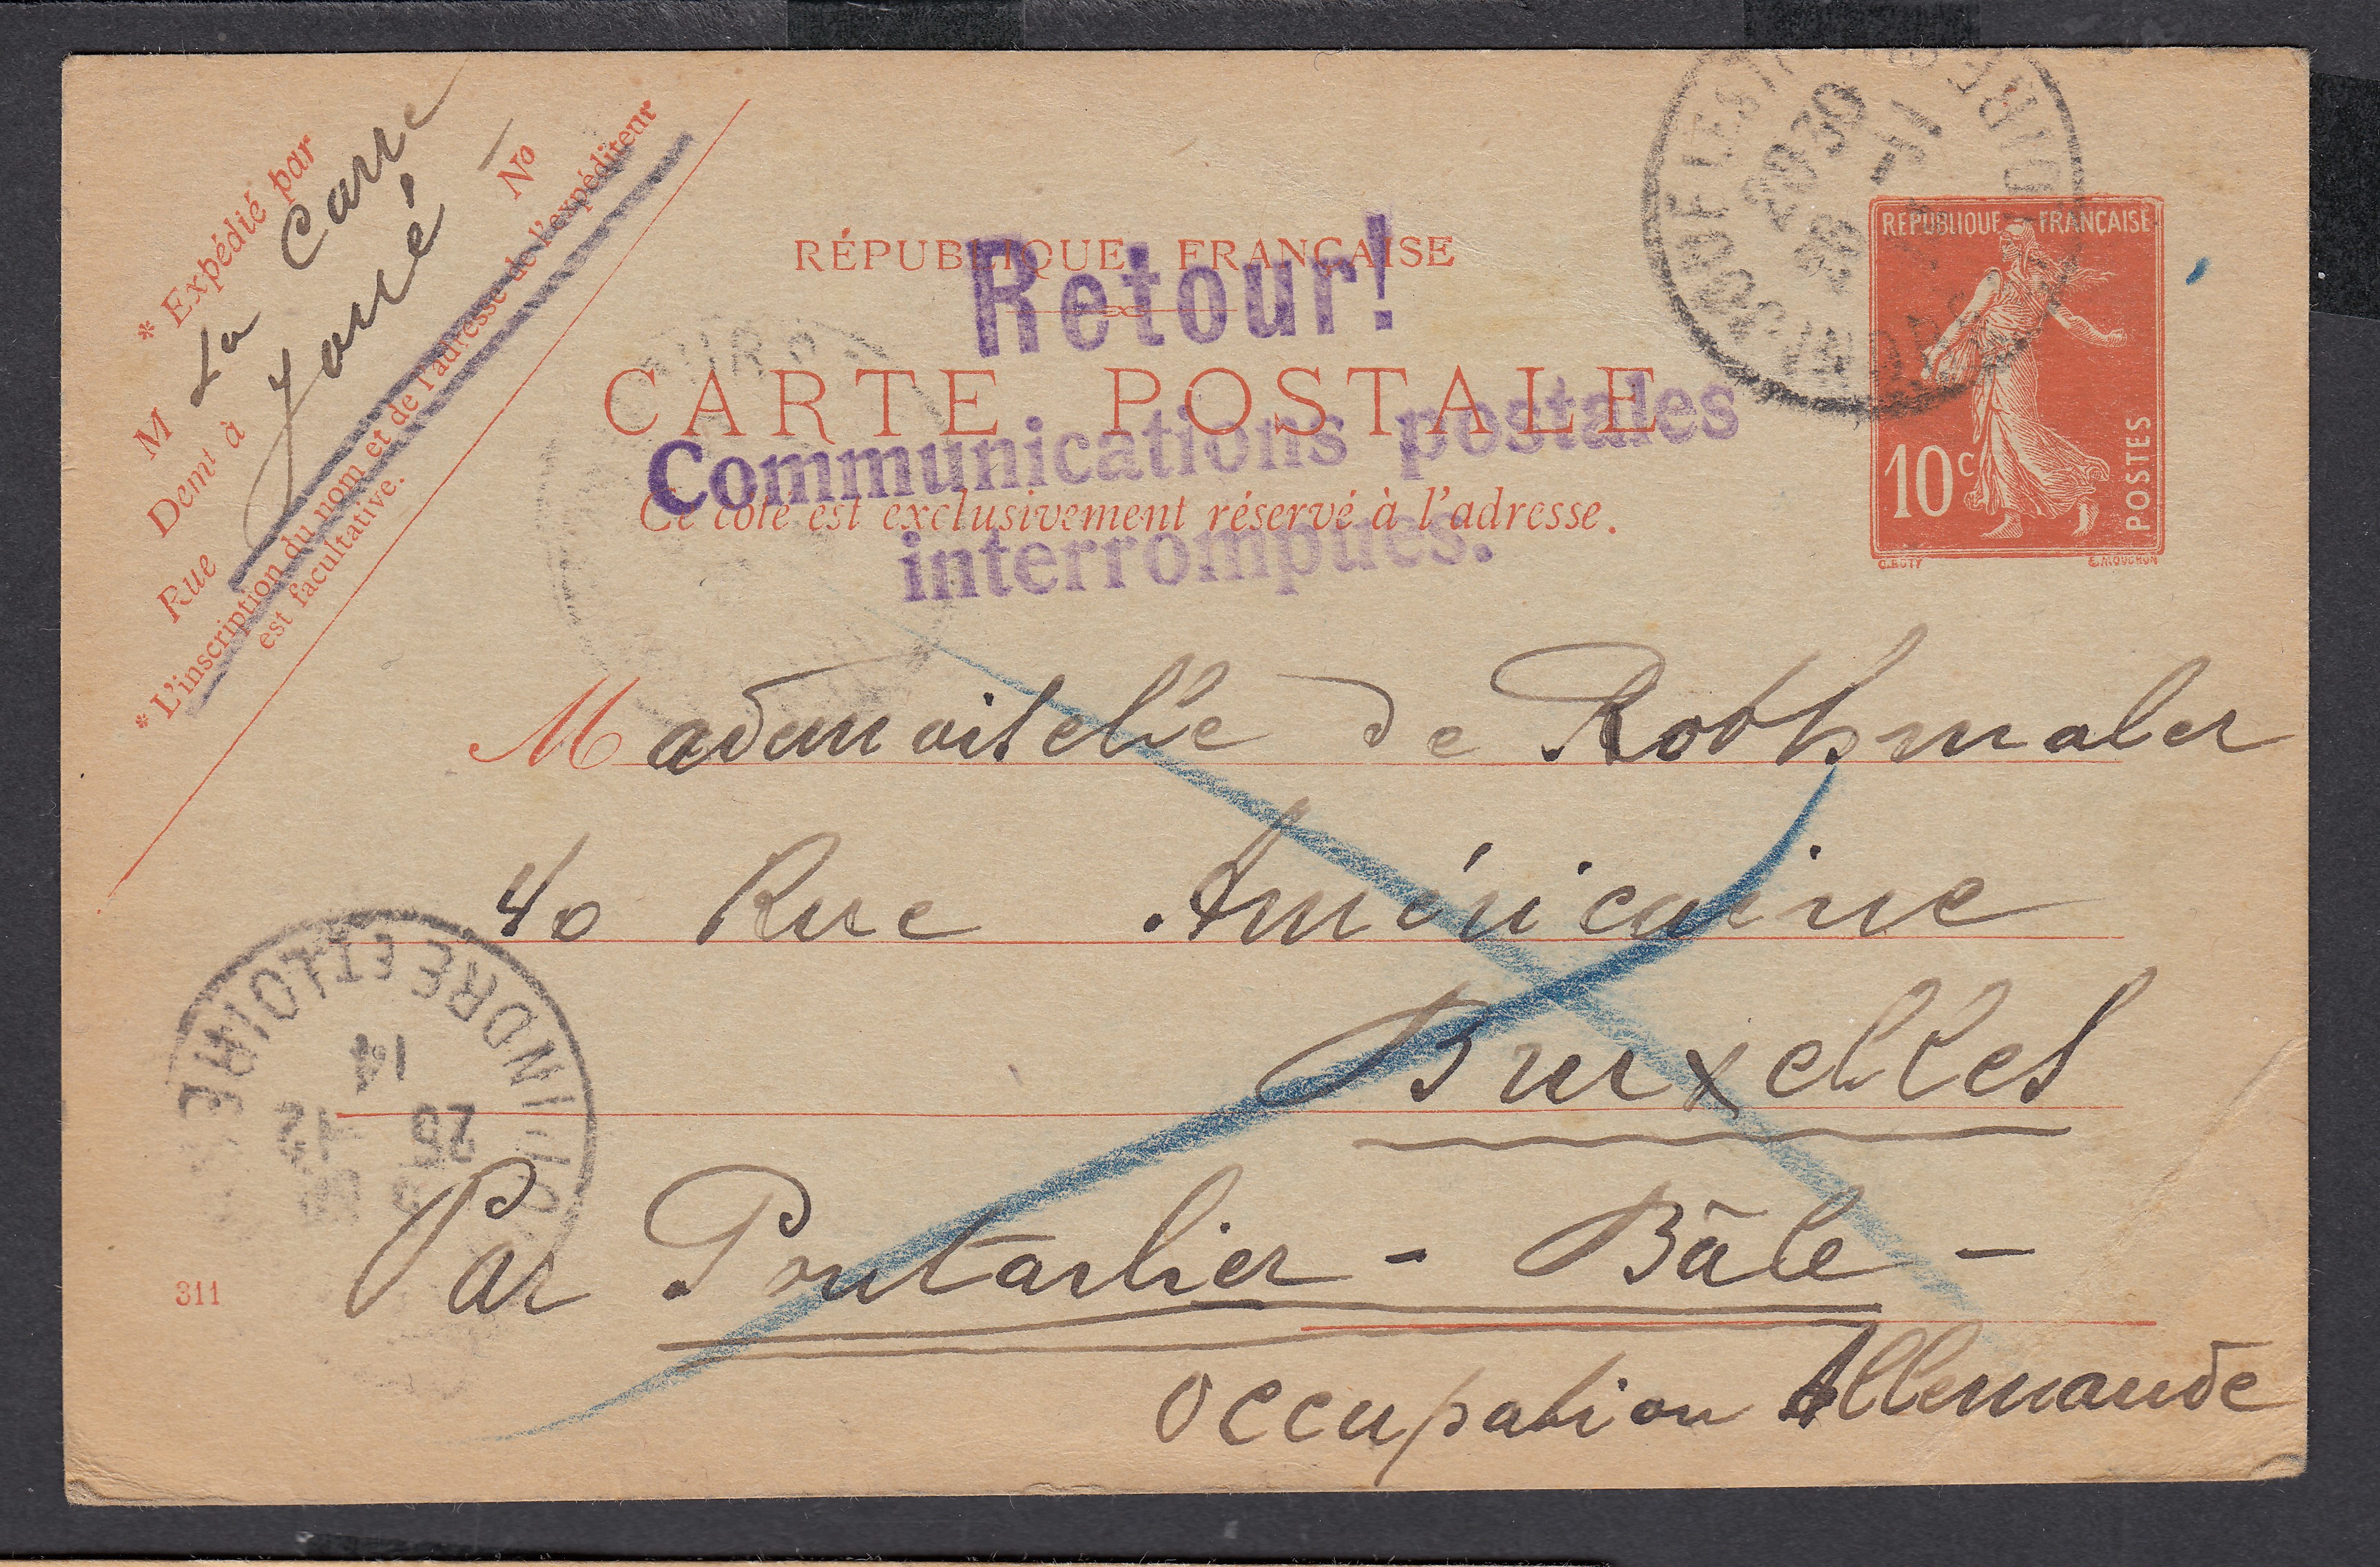 * Expédié par
M La Carre
Demt à Joué
Rue No
* L'inscription du nom et de l'adresse de l'expéditeur
est facultative.
RÉPUBLIQUE FRANÇAISE
Retour!
CARTE POSTALE
Communications postales
Ce côté est exclusivement réservé à l'adresse.
interrompues.
20 30
REPUBLIQUE FRANÇAISE
10c
POSTES
O. ROTY E. MOUCHON
Mademoiselle de Rothmaler
40 Rue Américaine
Bruxelles
INDRE ET LOIRE
14
26 -12
Par Pontarlier - Bâle -
311
Occupation Allemande